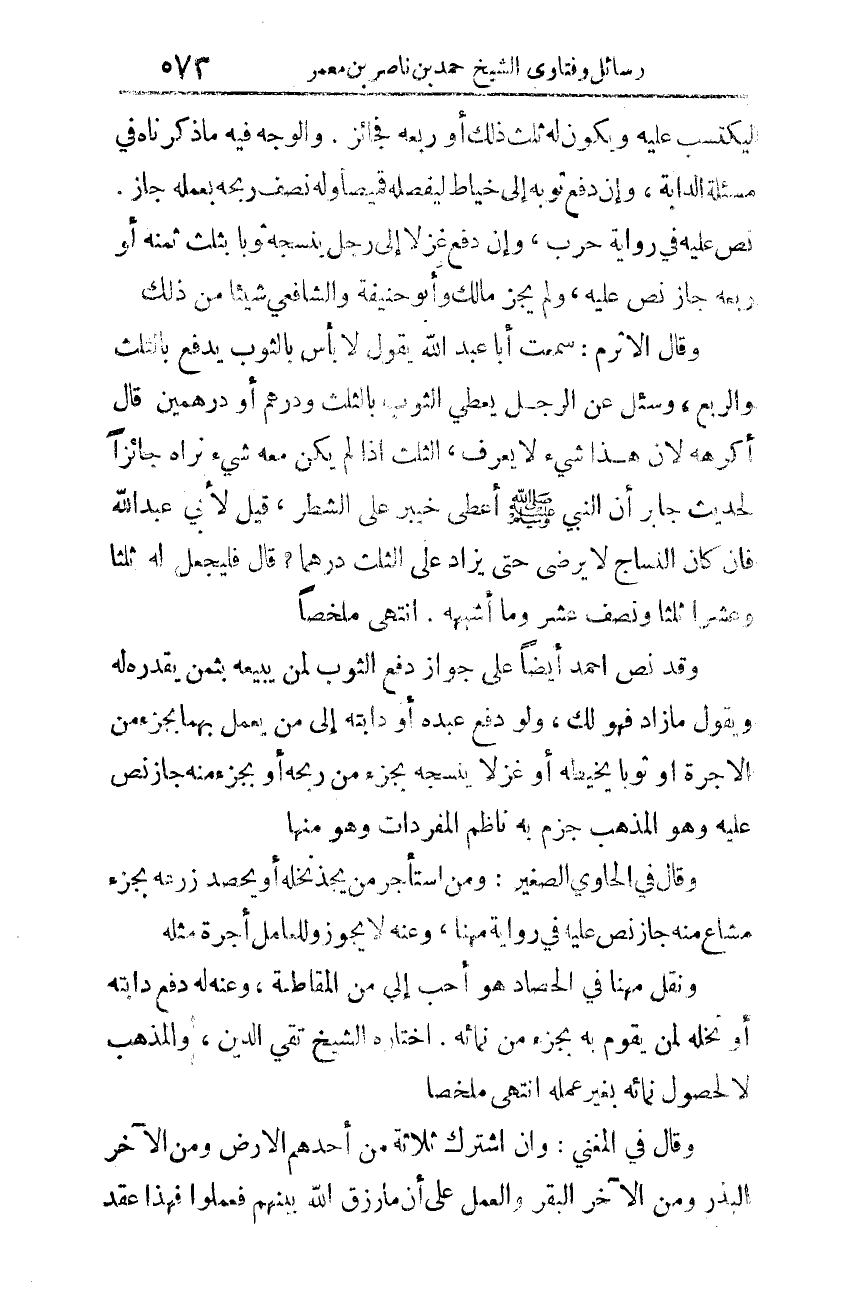 رسائل وفتاوى الشيخ حمد بن ناصر بن معمر ٥٧٣
ليكتسب عليه ويكون له ثلث ذلك أو ربعه فجائز . والوجه فيه ماذكرناه في
مسئلة الدابة ، وإن دفع ثوبه إلى خياط ليفصله قميصاً وله نصف ربحه بعمله جاز .
نص عليه في رواية حرب ، وإن دفع غزلا إلى رجل ينسجه ثوبا بثلث ثمنه أو
ربعه جاز نص عليه ، ولم يجز مالك وأبو حنيفة والشافعي شيئا من ذلك
وقال الاثرم : سمعت أبا عبد الله يقول لا بأس بالثوب يدفع بالثلث
والربع ، وسئل عن الرجل يعطي الثوب بالثلث ودرهم أو درهمين قال
أكرهه لان هـذا شيء لا يعرف ، الثلث اذا لم يكن معه شيء نراه جائزاً
لحديث جابر أن النبي ﷺ أعطى خيبر على الشطر ، قيل لأبي عبدالله
فان كان النساج لا يرضى حتى يزاد على الثلث درهما ? قال فليجعل له ثلثا
وعشرا ثلثا ونصف عشر وما أشبهه . انتهى ملخصاً
وقد نص احمد أيضاً على جواز دفع الثوب لمن يبيعه بثمن يقدره له
ويقول مازاد فهو لك ، ولو دفع عبده أو دابته إلى من يعمل بهما بجزء من
الاجرة او ثوبا يخيطه أو غزلا ينسجه بجزء من ربحه أو بجزء منه جاز نص
عليه وهو المذهب جزم به ناظم المفردات وهو منها
وقال في الحاوي الصغير : ومن استأجر من يجذ نخله أو يحصد زرعه بجزء
مشاع منه جاز نص عليه في رواية مهنا ، وعنه لا يجوز وللعامل أجرة مثله
ونقل مهنا في الحصاد هو أحب إلي من المقاطعة ، وعنه له دفع دابته
أو نخله لمن يقوم به بجزء من نمائه . اختاره الشيخ تقي الدين ، والمذهب
لا لحصول نمائه بغير عمله انتهى ملخصا
وقال في المغني : وان اشترك ثلاثة من أحدهم الارض ومن الآخر
البذر ومن الآخر البقر والعمل على أن مارزق الله بينهم فعملوا فهذا عقد